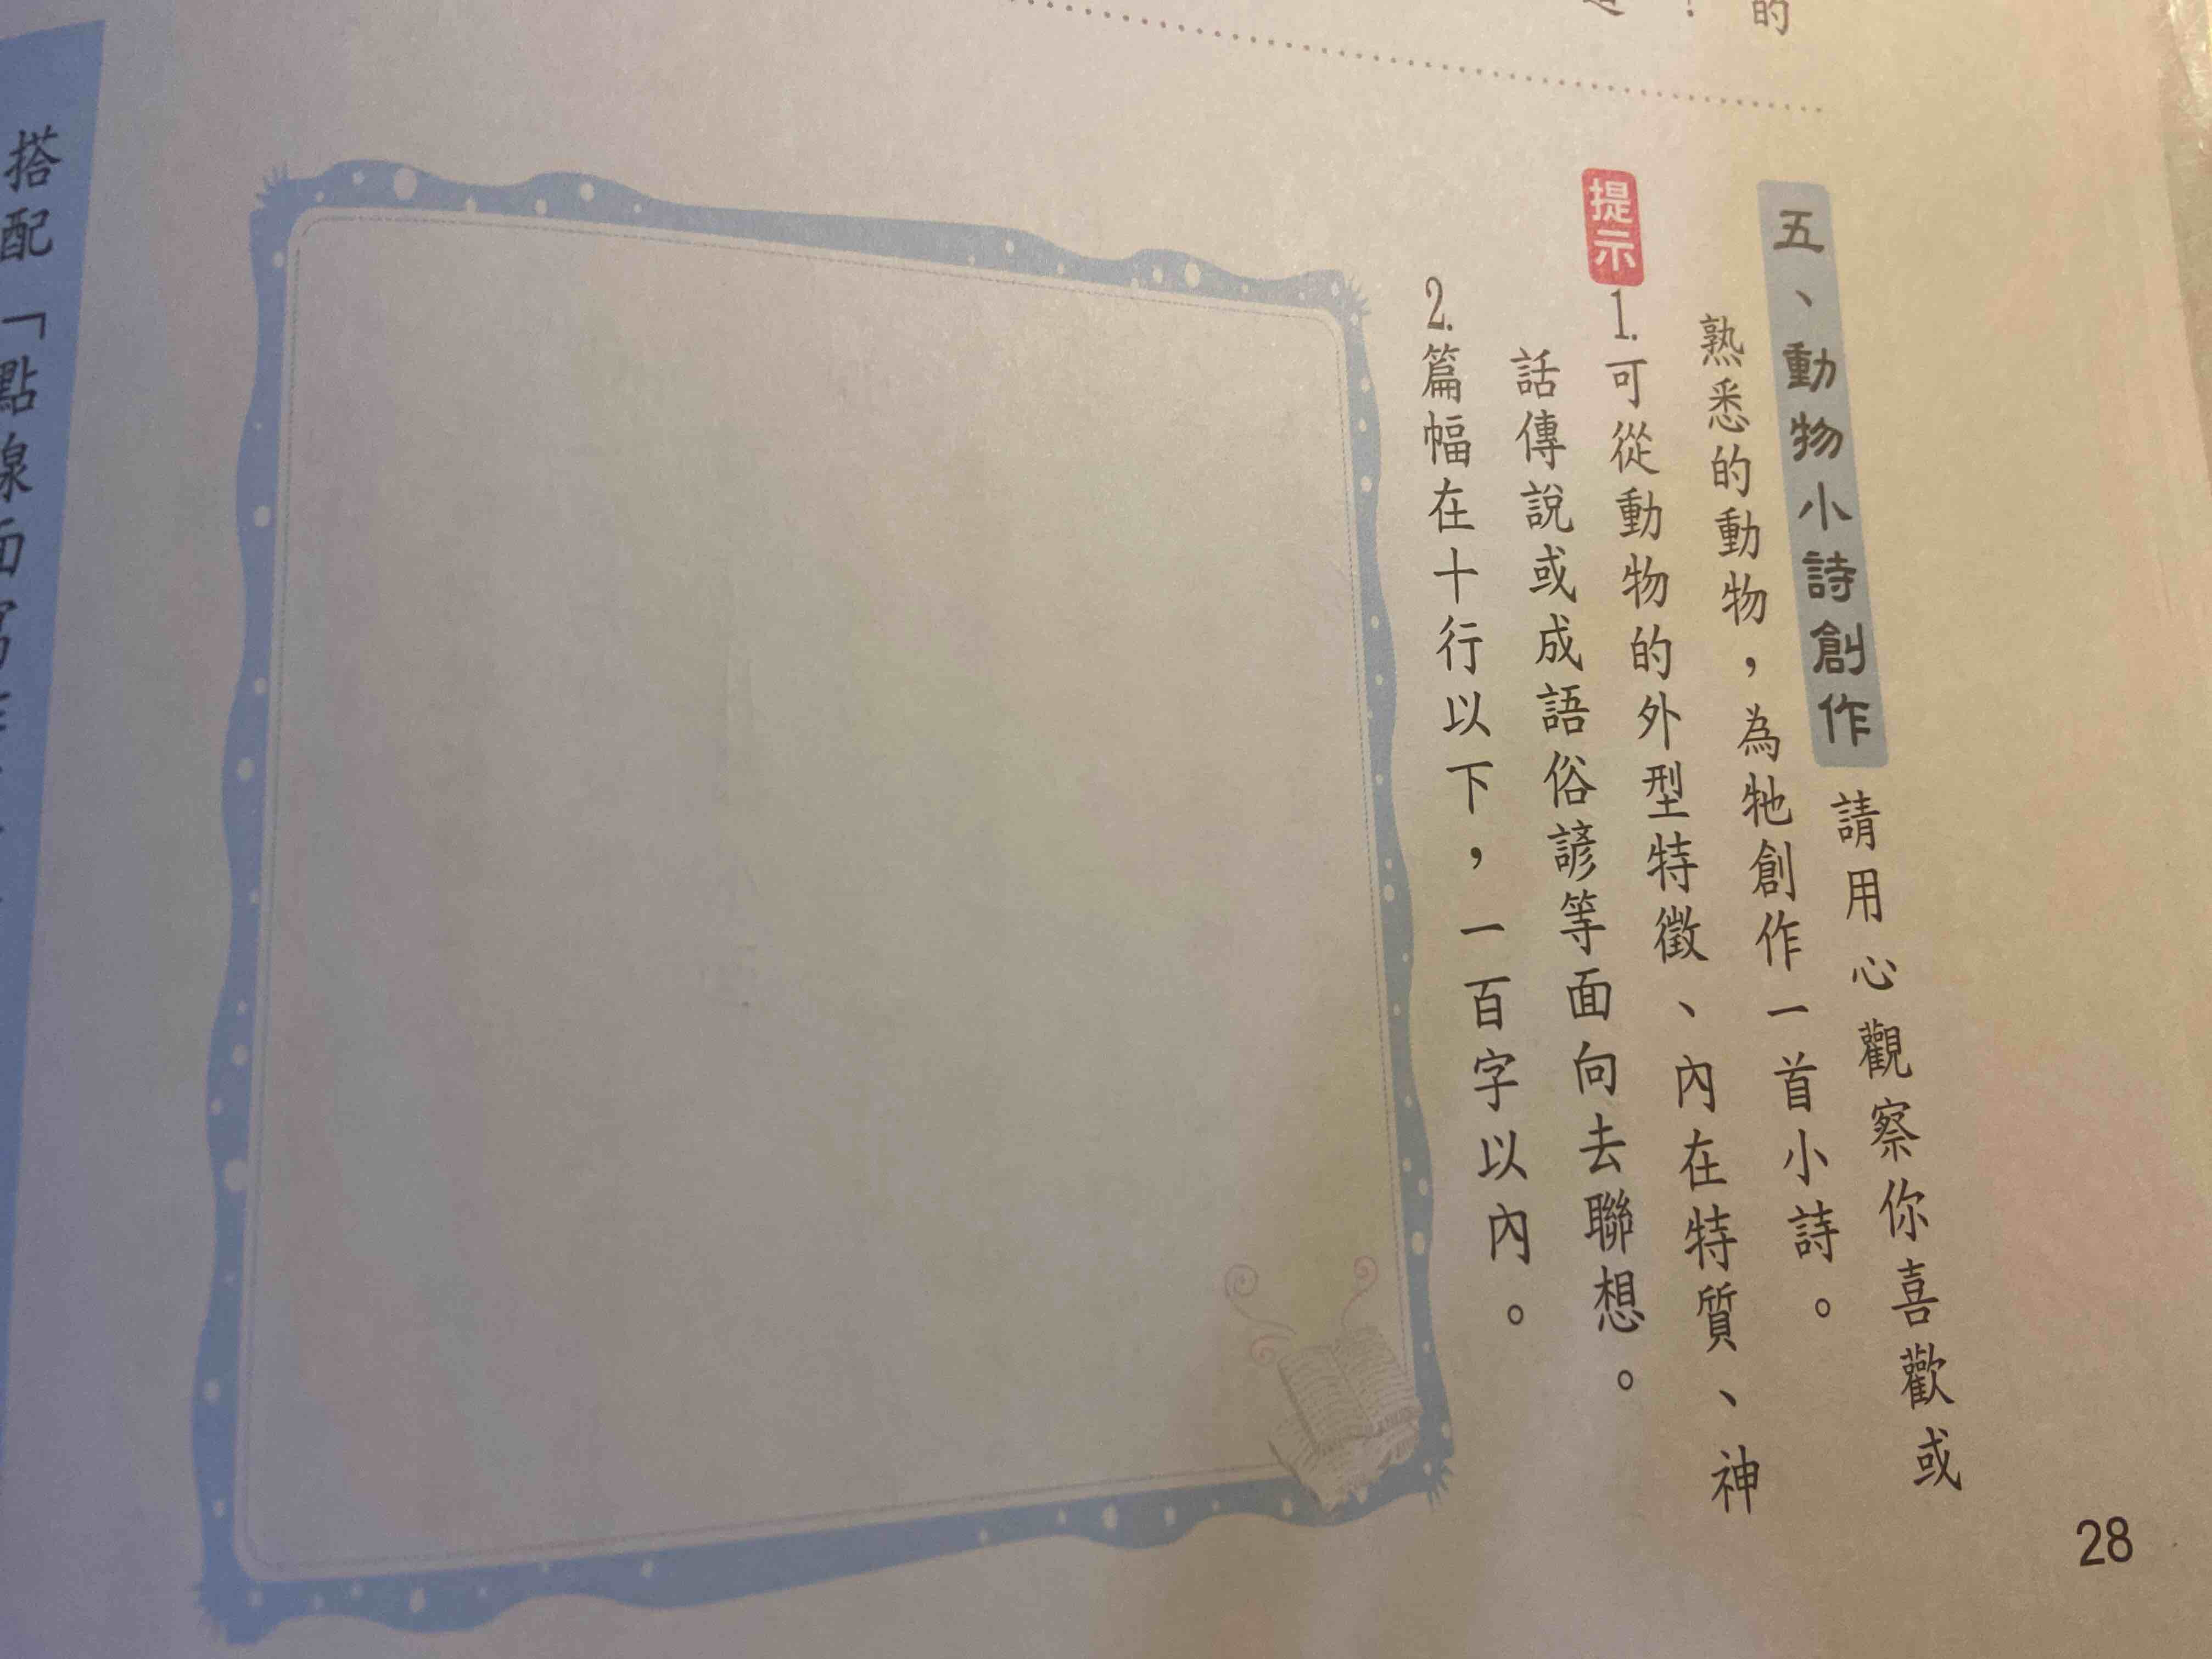 五、動物小詩創作 請用心觀察你喜歡或
熟悉的動物，為牠創作一首小詩。
提示 1.可從動物的外型特徵、內在特質、神
話傳說或成語俗諺等面向去聯想。
2.篇幅在十行以下，一百字以內。
28
的
！
搭配「點線面